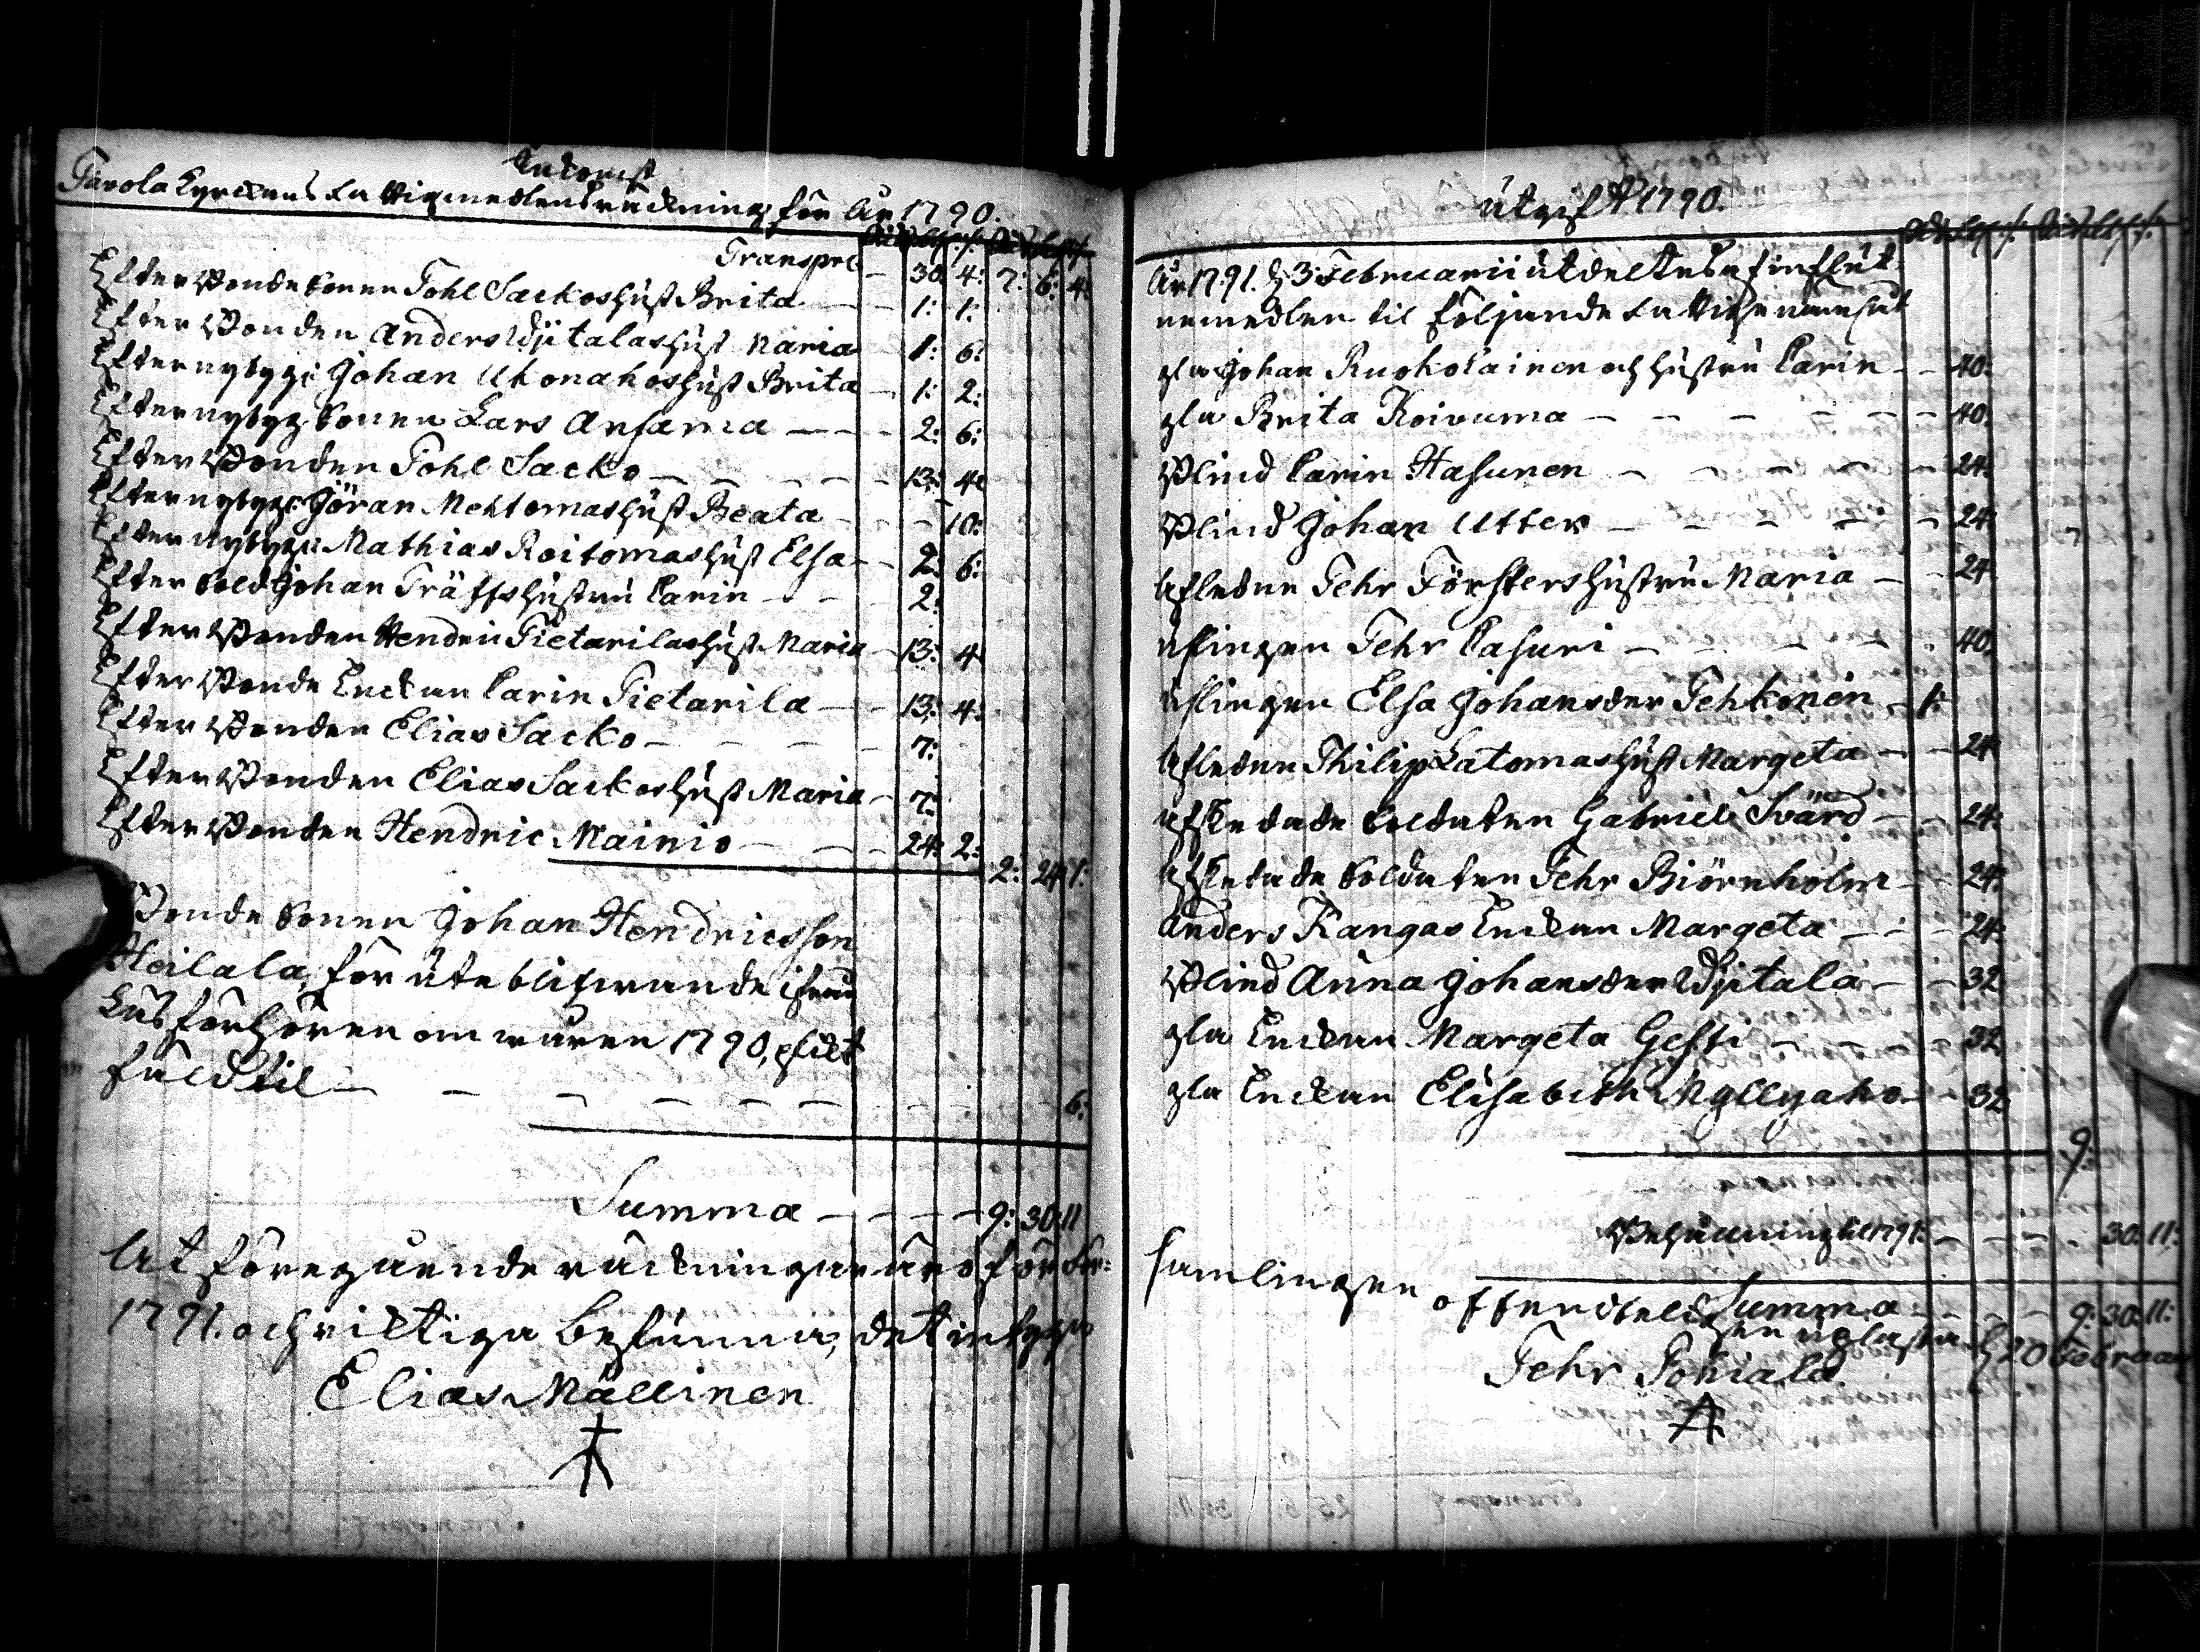 Inkomst
Pavola Kyrckans Fattigmedlens räckning för År 1790.
Rd sk rst Rd sk rst
Transprt — 30: 4: 7: 6: 4:
Efter Bondesonen Pohl Sackos hust Brita — 1: 1:
Efter Bonden Anders Ylitalas hust Maria — 1: 6:
Efter nybygg: Johan Ukonahos hust Brita — 1: 2:
Efter nybygg. sonen Lars Ansama — — 2: 6:
Efter Bonden Pohl Sacko — — — 13: 4:
Efter nybygg: Göran Mehtomas hust Beata — — 10:
Efter nybygg: Mathias Roitomas hust Elsa — 2: 6:
Efter Sold Johan Träffs hustru Carin — — 2:
Efter Bonden Hendric Pietarilas hust. Maria — 13: 4
Efter Bonde Enckan Carin Pietarila — 13: 4:
Efter Bonden Elias Sacko — — — 7:
Efter Bonden Elias Sackos hust Maria — 7:
Efter Bonden Hendric Mainio — — 24: 2:
2: 24: 1:
Bonde Sonen Johan Hendricsson
Heilala, för uteblifwande ifrån
Läsförhören om wåren 1790, plict
fäld til — — — — — — 6:
Summa — — — 9: 30: 11
At föregående räckningar äro för För=
1791. och richtiga befunna, det intyga
Elias Mällinen
Utgift A: 1790.
Rd sk rst Rd sk rst
År 1791. d 3 Februarii utdeltes af influt
nemedlen til följande Fattige
gla Johan Ruokolainen och hustru Carin — 40:
gla Brita Koivuma — — — — 40:
Blind Carin Hasunen — — — — 24:
Blind Johan Utter — — — — 24:
Afledne Pehr Försters hustru Maria — 24
uslingen Pehr Casuri — — — 40:
uslingen Elsa Johansder Pehkonen — 1:
Afledne Philip Latomas hust Margeta — 24:
Afskedade Soldaten Gabriel Svärd — 24:
Afskedade Soldaten Pehr Biörnholm — 24:
Anders Kangas Enckan Margeta — — 24:
Blind Anna Johansder Ylitala — — 32
gla Enckan Margeta Gesti — — — 32
gla Enckan Elisabeth Myllyaho — — 32
9:
Behållning til 1791: — — — 30: 11:
samlingen offenteligen Summa — — — 9: 30: 11:
uplästa d 20 Februarii
Pehr Pohiala